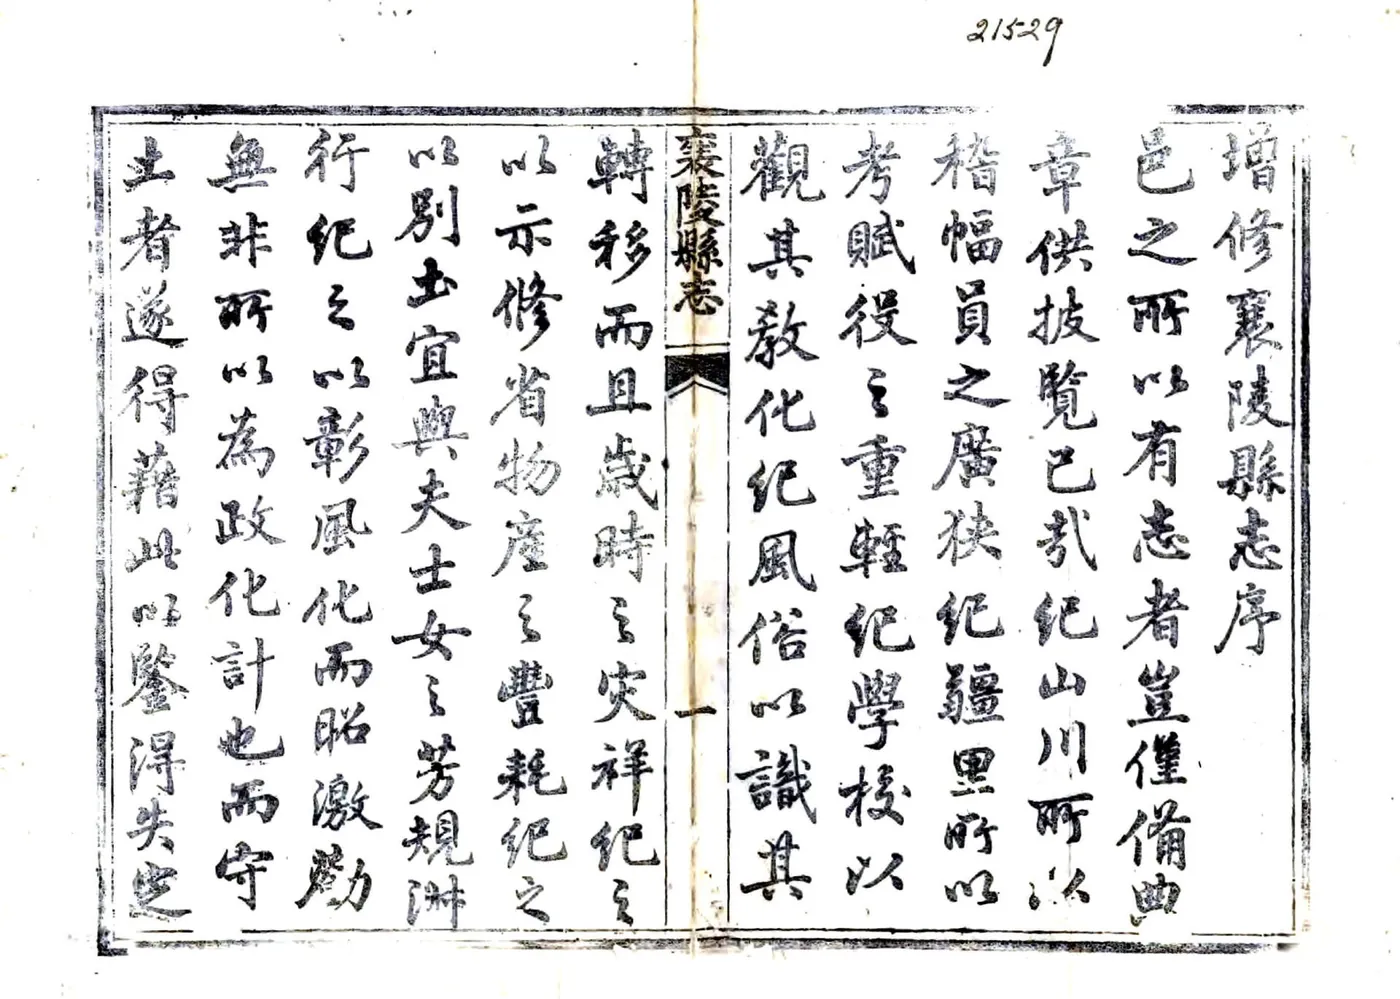 21529
增修襄陵縣志序
邑之所以有志者豈僅備典
章供披覽已哉紀山川所以
稽幅員之廣狹紀疆里所以
考賦役之重輕紀學校以
觀其教化紀風俗以識其
襄陵縣志
一
轉移而且歲時之灾祥紀之
以示修省物產之豐耗紀之
以別土宜與夫士女之芳規淋
行紀之以彰風化而昭激勸
無非所以為政化計也而守
土者遂得藉此以鑒得失定